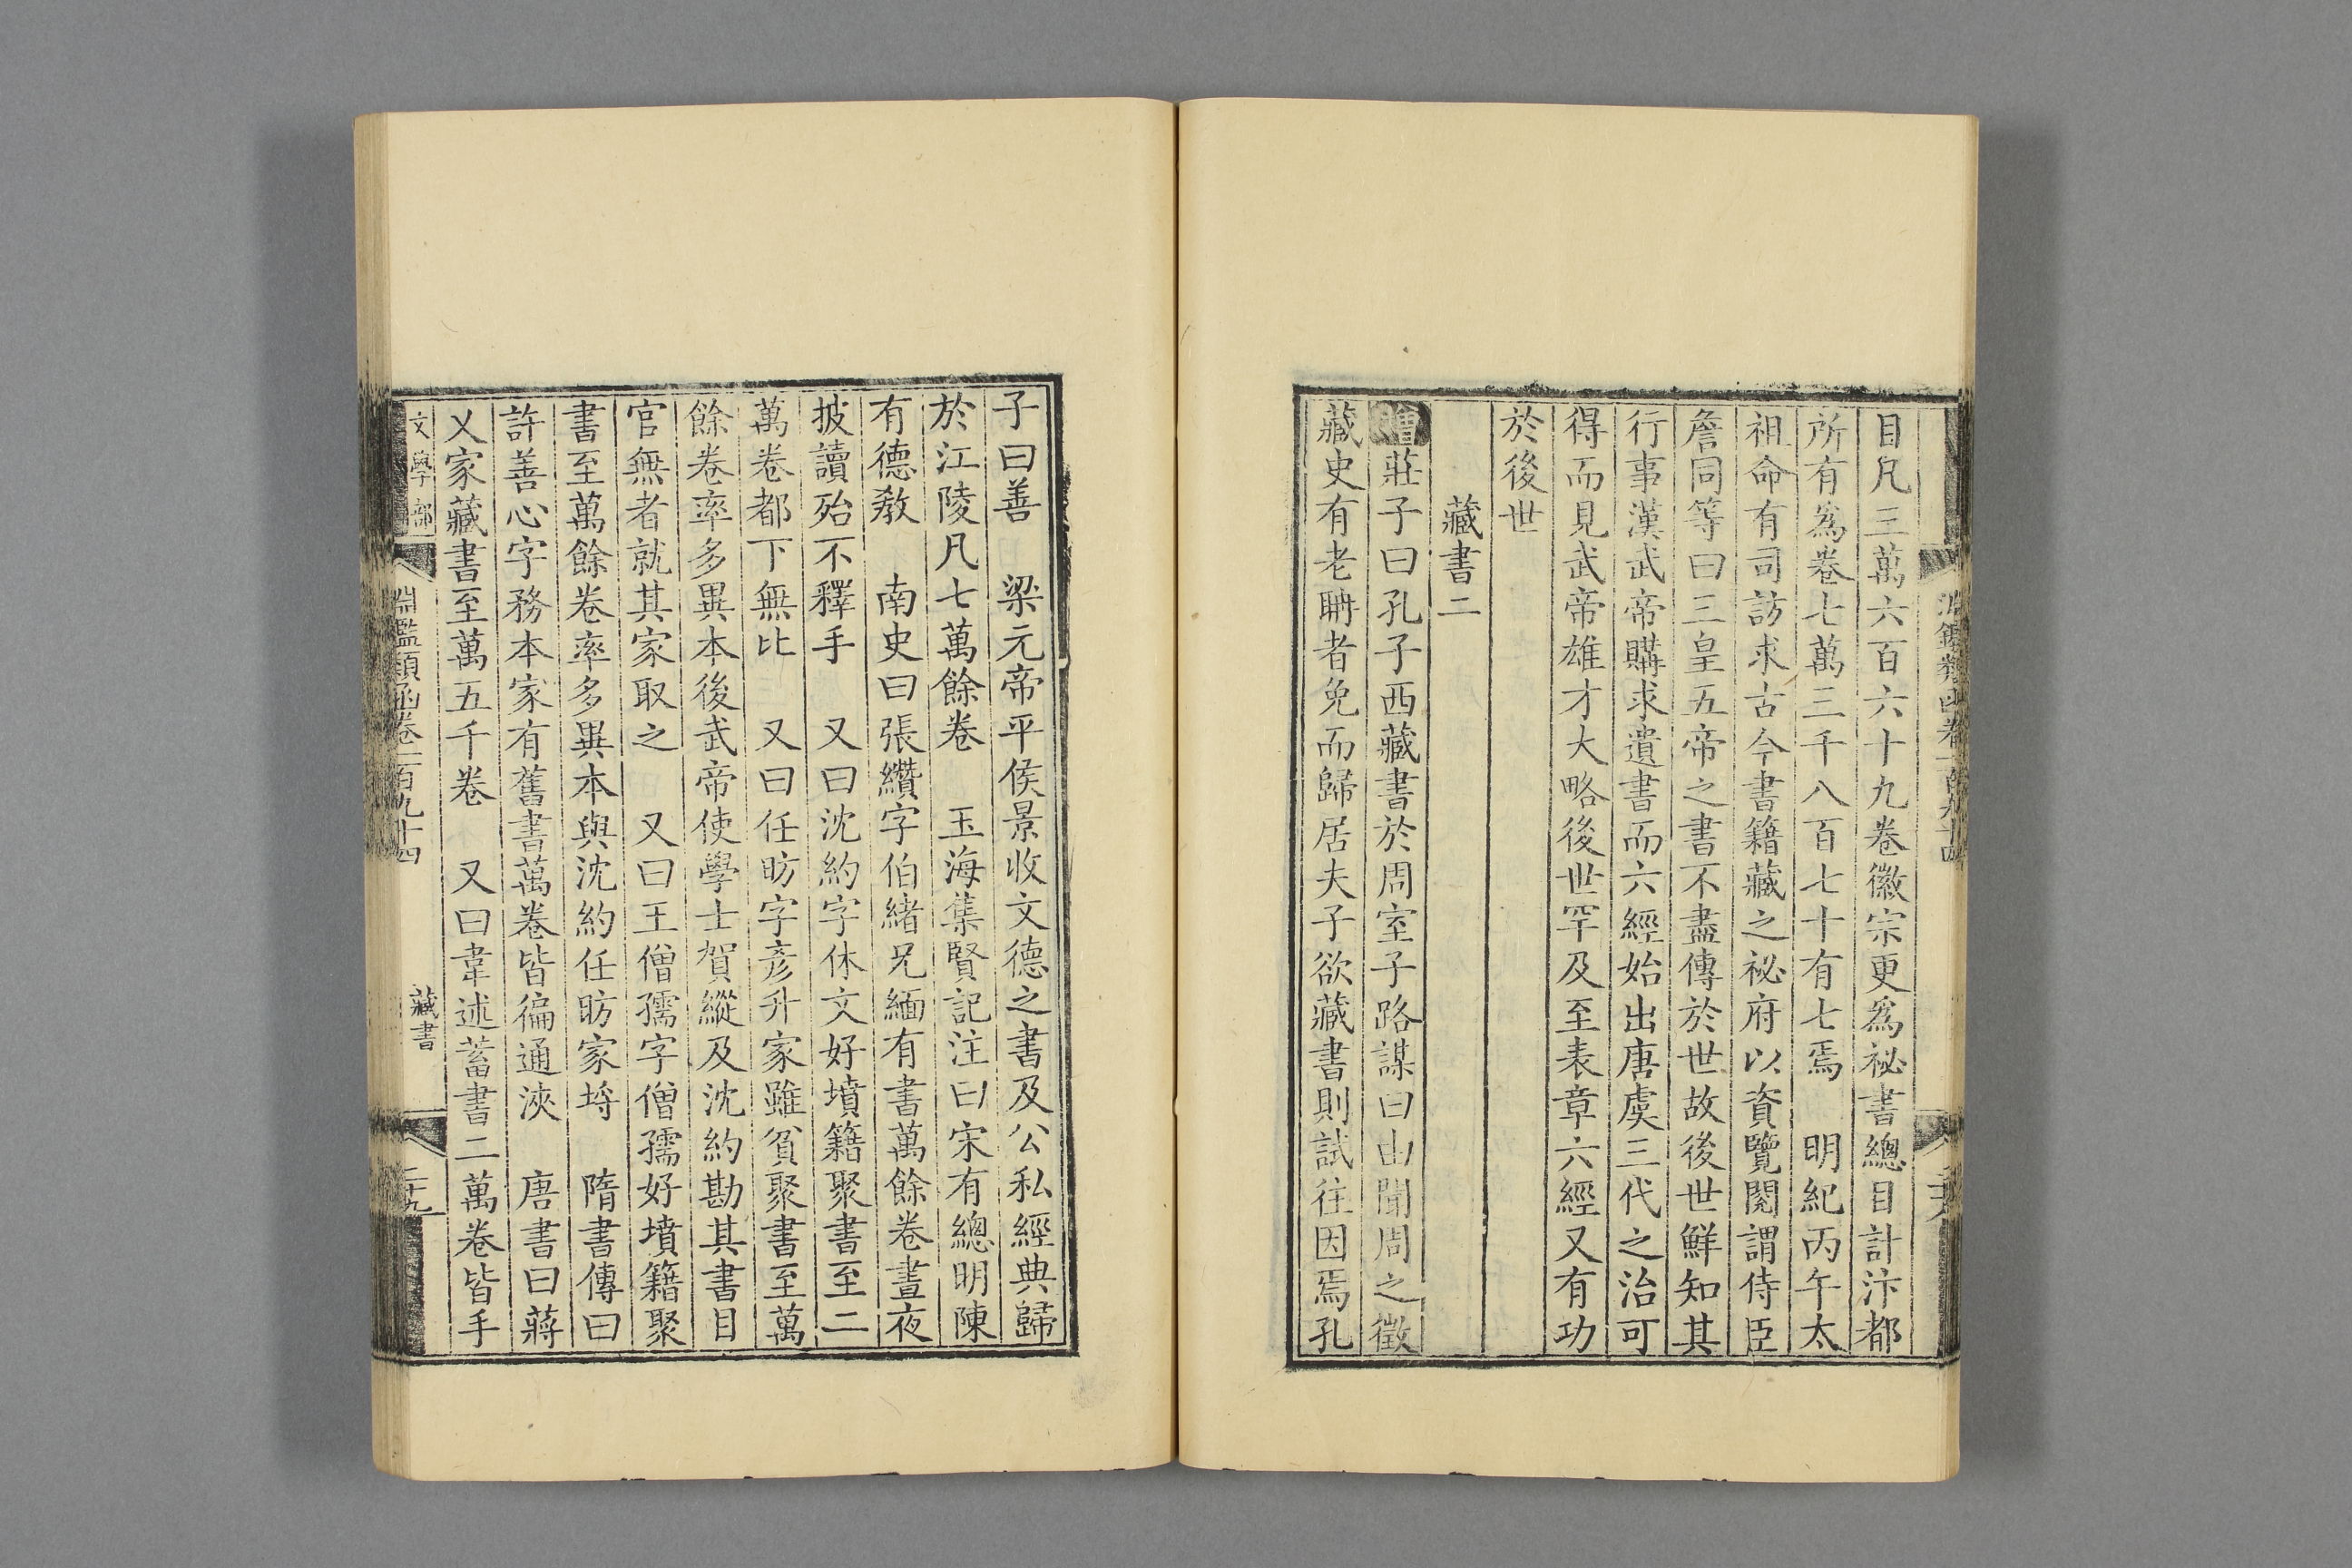 目凡三萬六百六十九卷徽宗更爲祕書總目計汴都
所有爲卷七萬三千八百七十有七焉　明紀丙午太
祖命有司訪求古今書籍藏之祕府以資覽閱謂侍臣
詹同等曰三皇五帝之書不盡傳於世故後世鮮知其
行事漢武帝購求遺書而六經始出唐虞三代之治可
得而見武帝雄才大略後世罕及至表章六經又有功
於後世
藏書二
增莊子曰孔子西藏書於周室子路謀曰由聞周之徵
藏史有老聃者免而歸居夫子欲藏書則試往因焉孔
子曰善　梁元帝平侯景收文德之書及公私經典歸
於江陵凡七萬餘卷　玉海集賢記注曰宋有總明陳
有德教　南史曰張纘字伯緒兄緬有書萬餘卷晝夜
披讀殆不釋手　又曰沈約字休文好墳籍聚書至二
萬卷都下無比　又曰任昉字彥升家雖貧聚書至萬
餘卷率多異本後武帝使學士賀縱及沈約勘其書目
官無者就其家取之　又曰王僧孺字僧孺好墳籍聚
書至萬餘卷率多異本與沈約任昉家埒　隋書傳曰
許善心字務本家有舊書萬卷皆徧通浹　唐書曰蔣
乂家藏書至萬五千卷　又曰韋述蓄書二萬卷皆手
文學部　淵鑑類函卷一百九十四　藏書　二十九